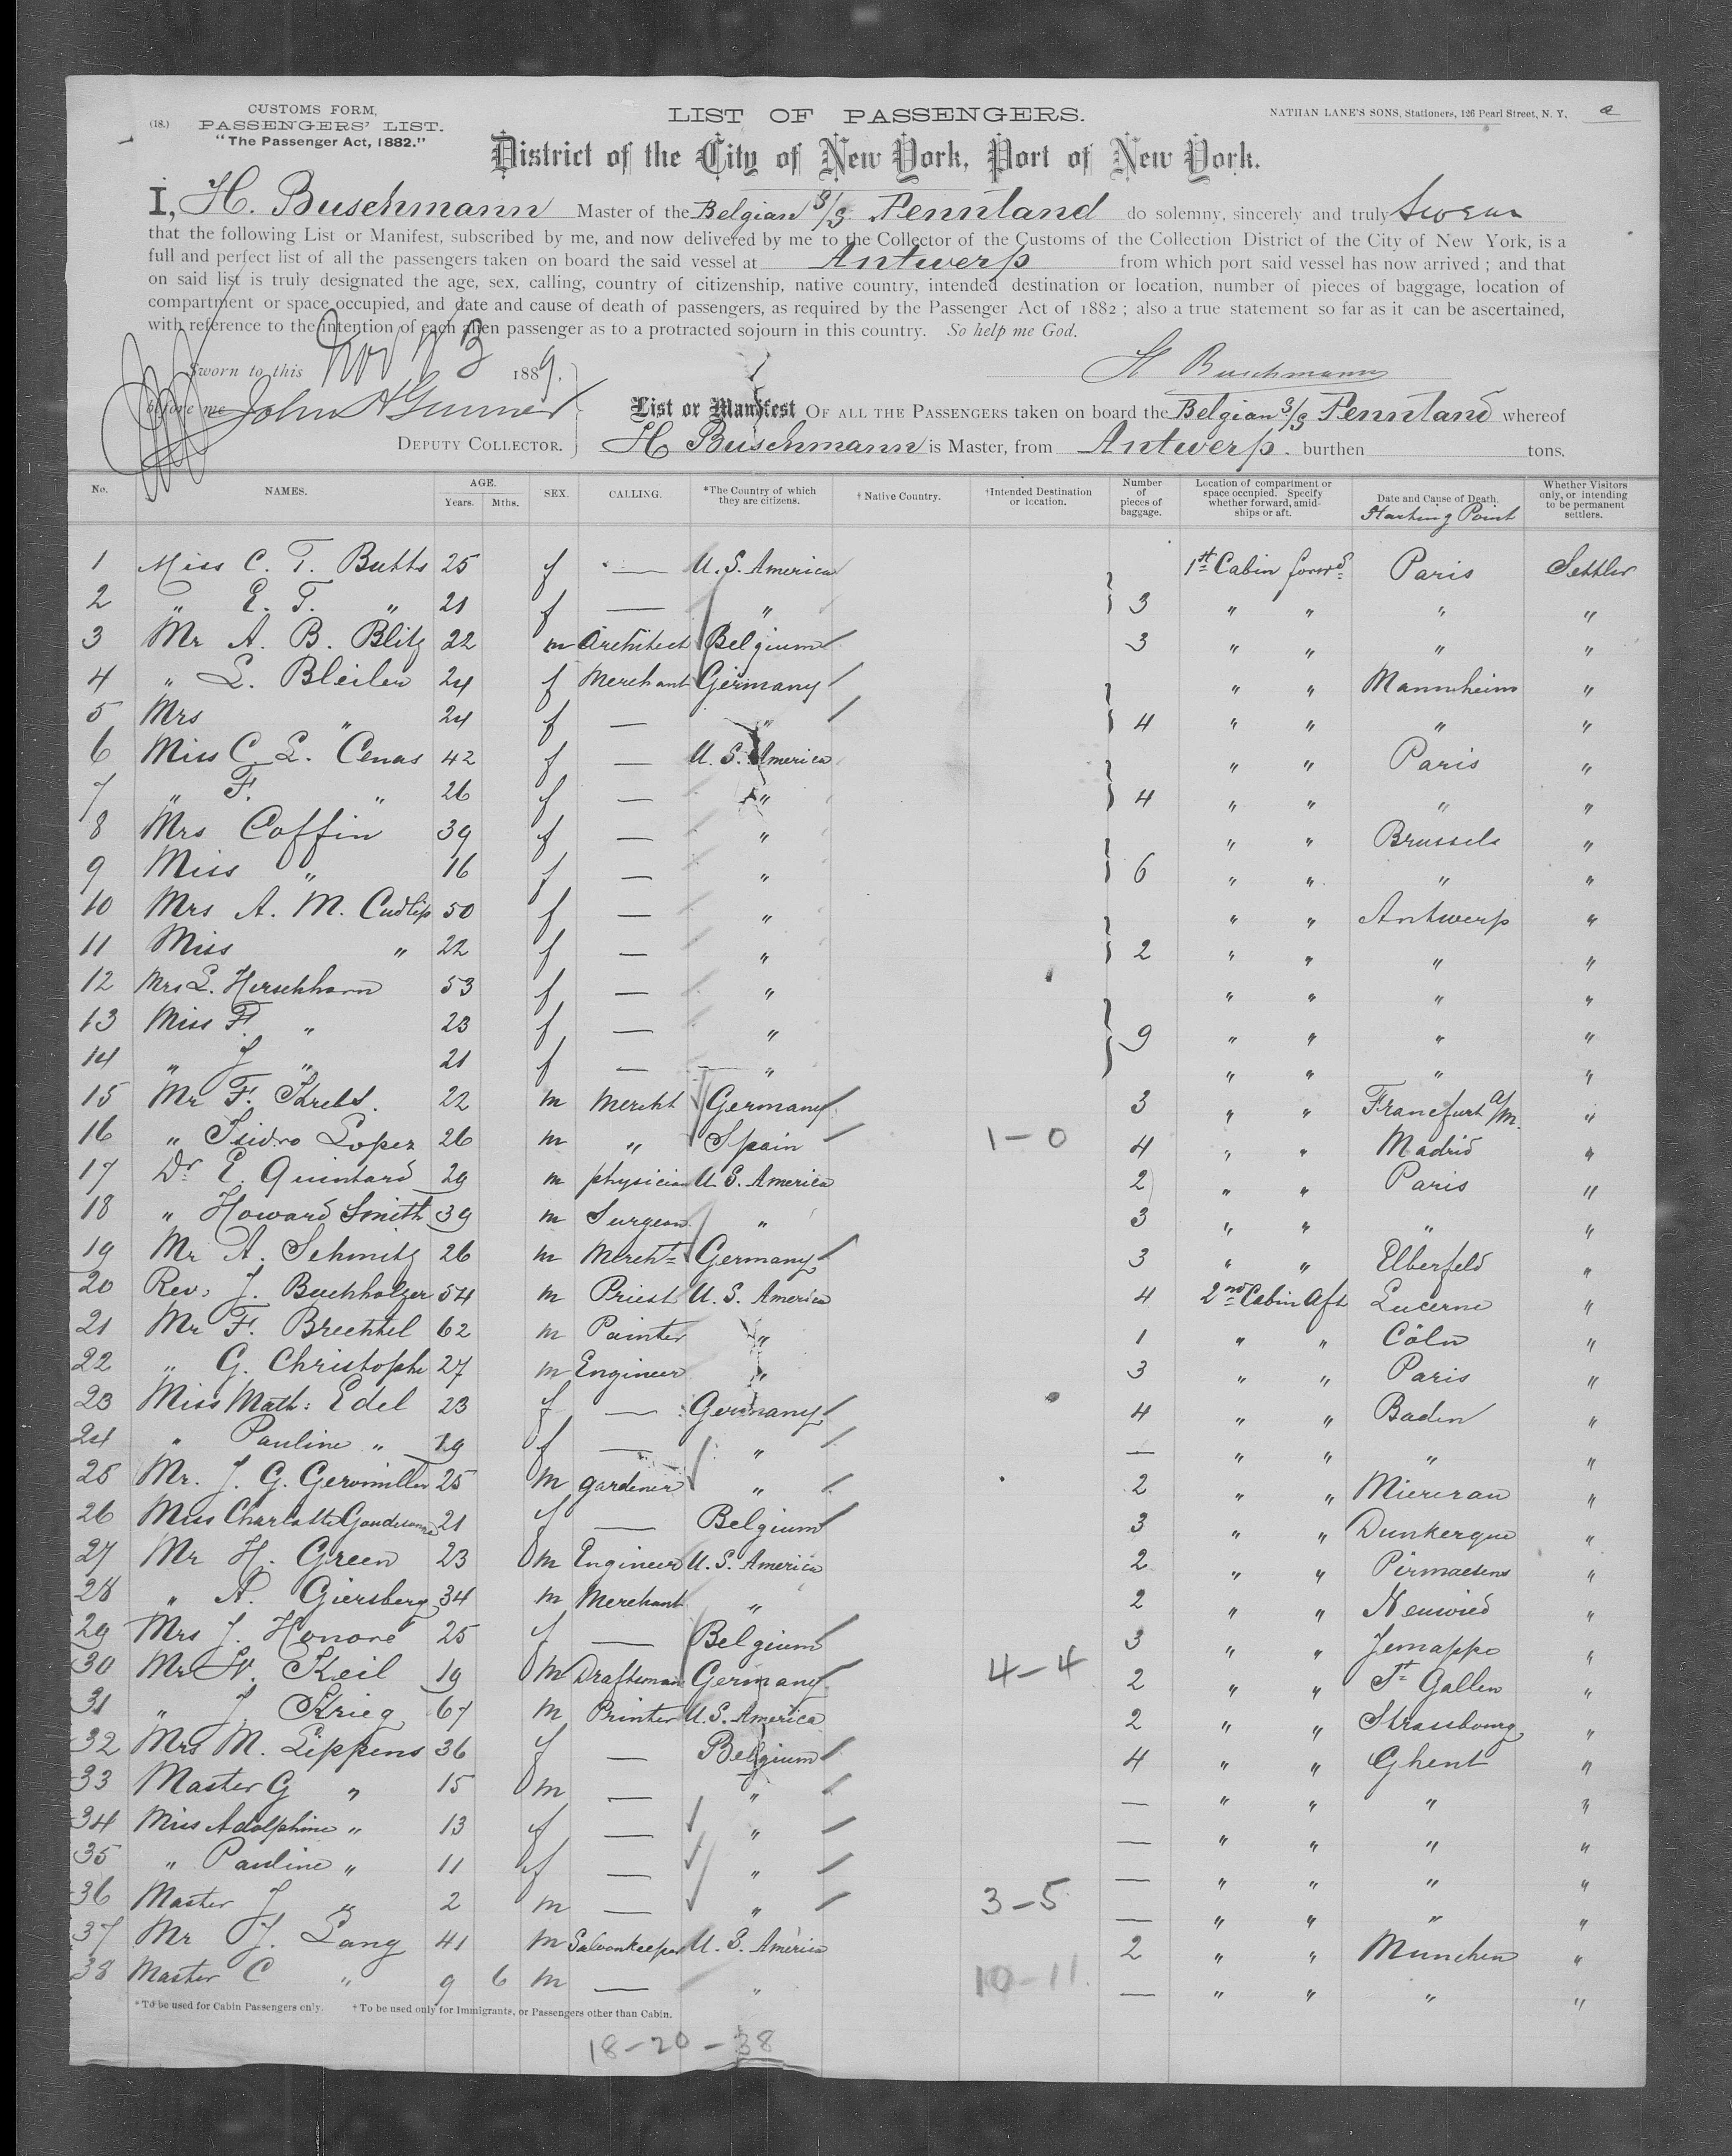 CUSTOMS FORM,
(18.) PASSENGERS' LIST.
"The Passenger Act, 1882."
LIST OF PASSENGERS.
NATHAN LANE'S SONS, Stationers, 126 Pearl Street, N. Y.
District of the City of New York, Port of New York.
I, H. Buschmann Master of the Belgian S/S Pennland do solemny, sincerely and truly Swear
that the following List or Manifest, subscribed by me, and now delivered by me to the Collector of the Customs of the Collection District of the City of New York, is a
full and perfect list of all the passengers taken on board the said vessel at Antwerp from which port said vessel has now arrived; and that
on said list is truly designated the age, sex, calling, country of citizenship, native country, intended destination or location, number of pieces of baggage, location of
compartment or space occupied, and date and cause of death of passengers, as required by the Passenger Act of 1882; also a true statement so far as it can be ascertained,
with reference to the intention of each alien passenger as to a protracted sojourn in this country. So help me God.
Sworn to this Nov 1889.
H Buschmann
before me John
List or Manifest OF ALL THE PASSENGERS taken on board the Belgian S/S Pennland whereof
DEPUTY COLLECTOR. H Buschmann is Master, from Antwerp. burthen tons.
No. NAMES. AGE. Years. Mths. SEX. CALLING. *The Country of which they are citizens. †Native Country. †Intended Destination or location. Number of pieces of baggage. Location of compartment or space occupied. Specify whether forward, amidships or aft. Date and Cause of Death. Starting Point Whether Visitors only, or intending to be permanent settlers.
1 Miss C. T. Butts 25 f — U. S. America 1st Cabin forwd Paris Settler
2 " E. T. " 21 f — " 3 " " " "
3 Mr A. B. Blitz 22 m Architect Belgium 3 " " " "
4 " L. Bleiler 24 f Merchant Germany " " Mannheim "
5 Mrs " 24 f — " 4 " " " "
6 Miss C. L. Cenas 42 f — U. S. America " " Paris "
7 " F. " 26 f — " 4 " " " "
8 Mrs Coffin 39 f — " " " Brussels "
9 Miss " 16 f — " 6 " " " "
10 Mrs A. M. Cudlip 50 f — " " " Antwerp "
11 Miss " 22 f — " 2 " " " "
12 Mrs L. Herschhorn 53 f — " " " " "
13 Miss F. " 23 f — " 9 " " " "
14 " J " 21 f — " " " " "
15 Mr F. Krebs. 22 m Mercht Germany 3 " " Francfurt a/M. "
16 " Isidro Lopez 26 m " Spain 1-0 4 " " Madrid "
17 Dr E. Quintard 29 m physician U. S. America 2 " " Paris "
18 " Howard Smith 39 m Surgeon " 3 " " " "
19 Mr A. Schmitz 26 m Mercht Germany 3 " " Elberfeld "
20 Rev. J. Buchholzer 54 m Priest U. S. America 4 2nd Cabin Aft Lucerne "
21 Mr F. Brechtel 62 m Painter " 1 " " Cöln "
22 " G. Christophe 27 m Engineer " 3 " " Paris "
23 Miss Math: Edel 23 f — Germany 4 " " Baden "
24 " Pauline " 19 f — " — " " " "
25 Mr. J. G. 25 m gardener " 2 " " "
26 Miss Charlotte 21 f — Belgium 3 " " Dunkerque "
27 Mr H. Green 23 m Engineer U. S. America 2 " " Pirmaesens "
28 " A. Giersberg 34 m Merchant " 2 " " Neuwied "
29 Mrs J. Honoré 25 f — Belgium 3 " " Jemappe "
30 Mr W. Keil 19 m Draftsman Germany 4-4 2 " " St Gallen "
31 " J. Krieg 67 m Printer U. S. America 2 " " Strassbourg "
32 Mrs M. Lippens 36 f — Belgium 4 " " Ghent "
33 Master G " 15 m — " — " " " "
34 Miss Adolphine " 13 f — " — " " " "
35 " Pauline " 11 f — " — " " " "
36 Master J " 2 m — " 3-5 — " " " "
37 Mr J. Lang 41 m Saloonkeeper U. S. America 2 " " Munchen "
38 Master C " 9 6 m — " 10-11. — " " " "
*To be used for Cabin Passengers only. †To be used only for Immigrants, or Passengers other than Cabin.
18-20-38